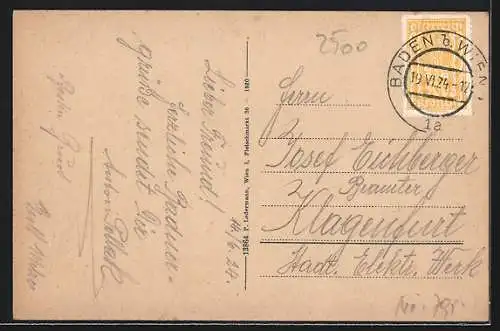 2500
BADEN b. WIEN
19.VI.24
1a
Lieber Freund!
Herzliche Badner-
grüsse sendet Dir
Anton
14/6 24.
13864 P. Ledermann, Wien I, Fleischmarkt 20 - 1920
Herrn
Josef Eichberger
Beamter
Klagenfurt
Stadt. Elektr. Werk